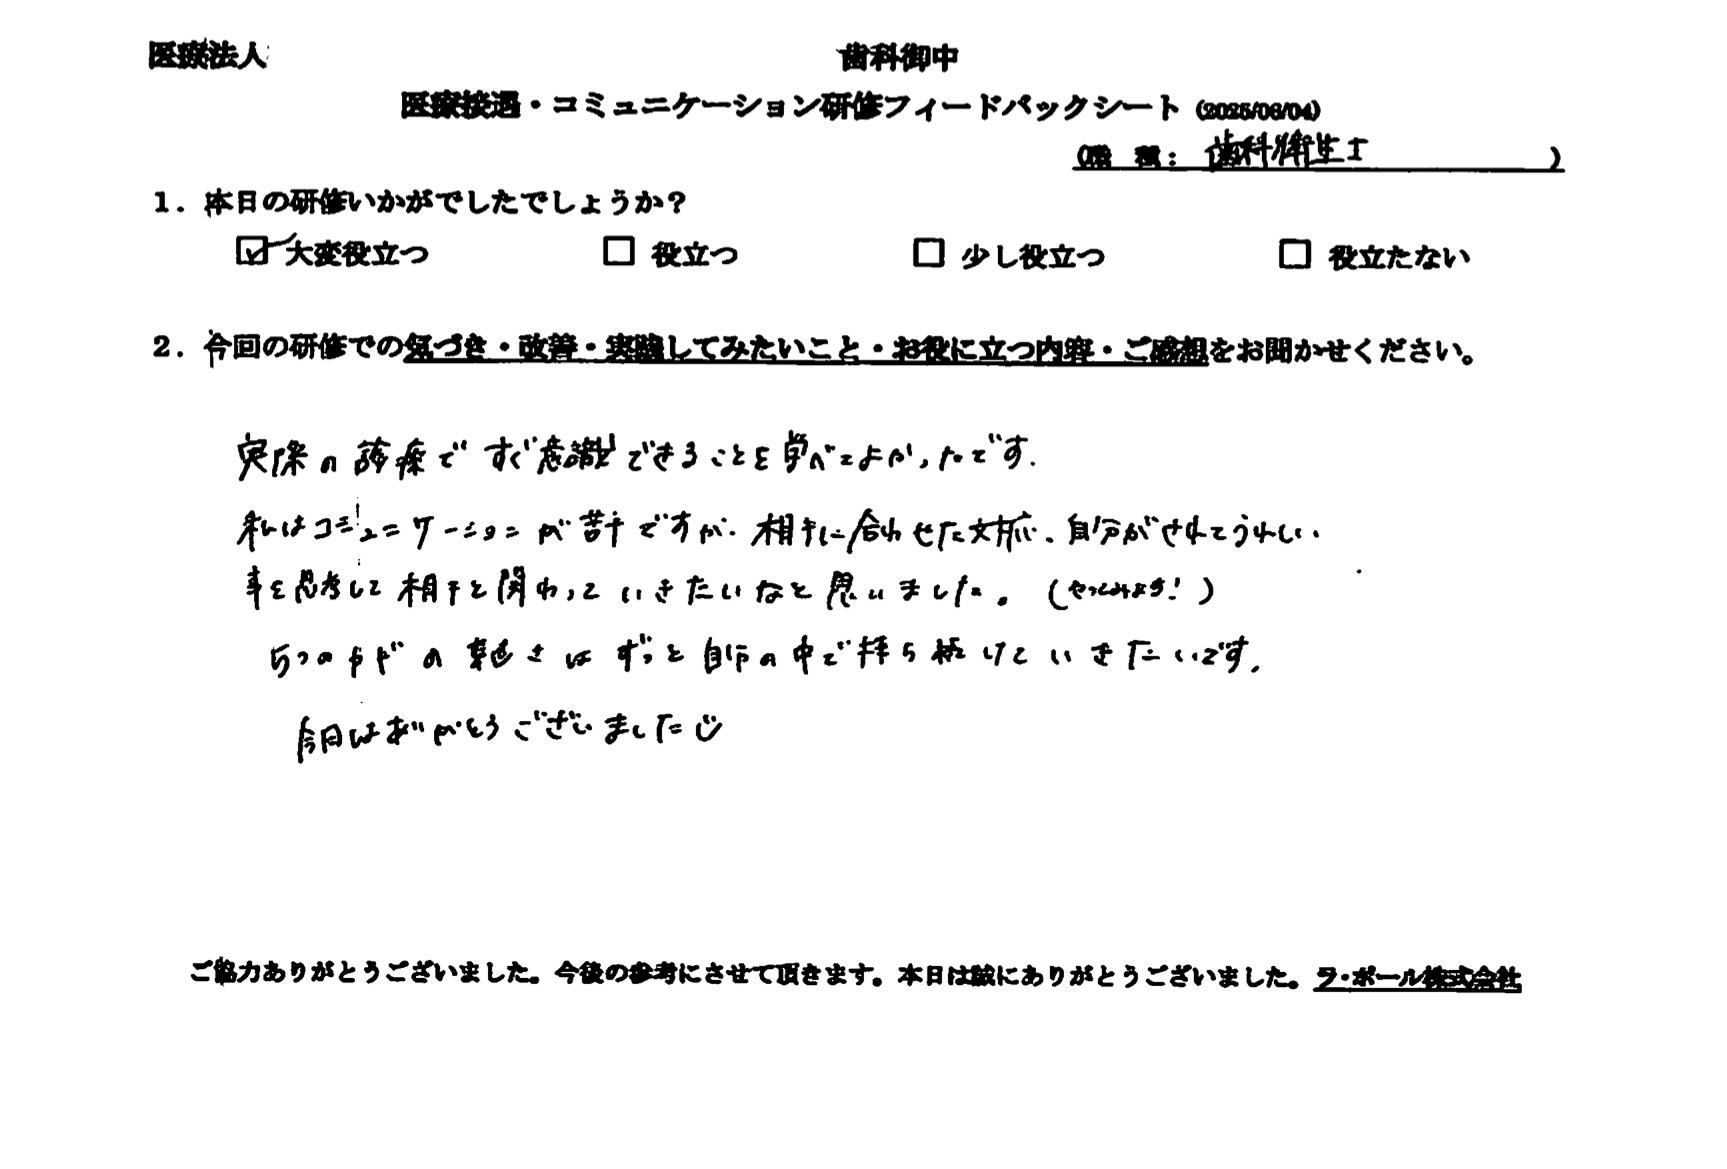 医療法人 歯科御中
医療接遇・コミュニケーション研修フィードバックシート (2025/06/04)
(職 種: 歯科衛生士 )
1. 本日の研修いかがでしたでしょうか?
☑ 大変役立つ □ 役立つ □ 少し役立つ □ 役立たない
2. 今回の研修での気づき・改善・実践してみたいこと・お役に立つ内容・ご感想をお聞かせください。
実際の診療ですぐ意識できることを学べてよかったです.
私はコミュニケーションが苦手ですが、相手に合わせた対応、自分がされてうれしい
事を思考して相手と関わっていきたいなと思いました。(やってみます!)
5つの の さはずっと自分の中で持ち続けていきたいです.
今日はありがとうございました☺
ご協力ありがとうございました。今後の参考にさせて頂きます。本日は誠にありがとうございました。ラ・ポール株式会社